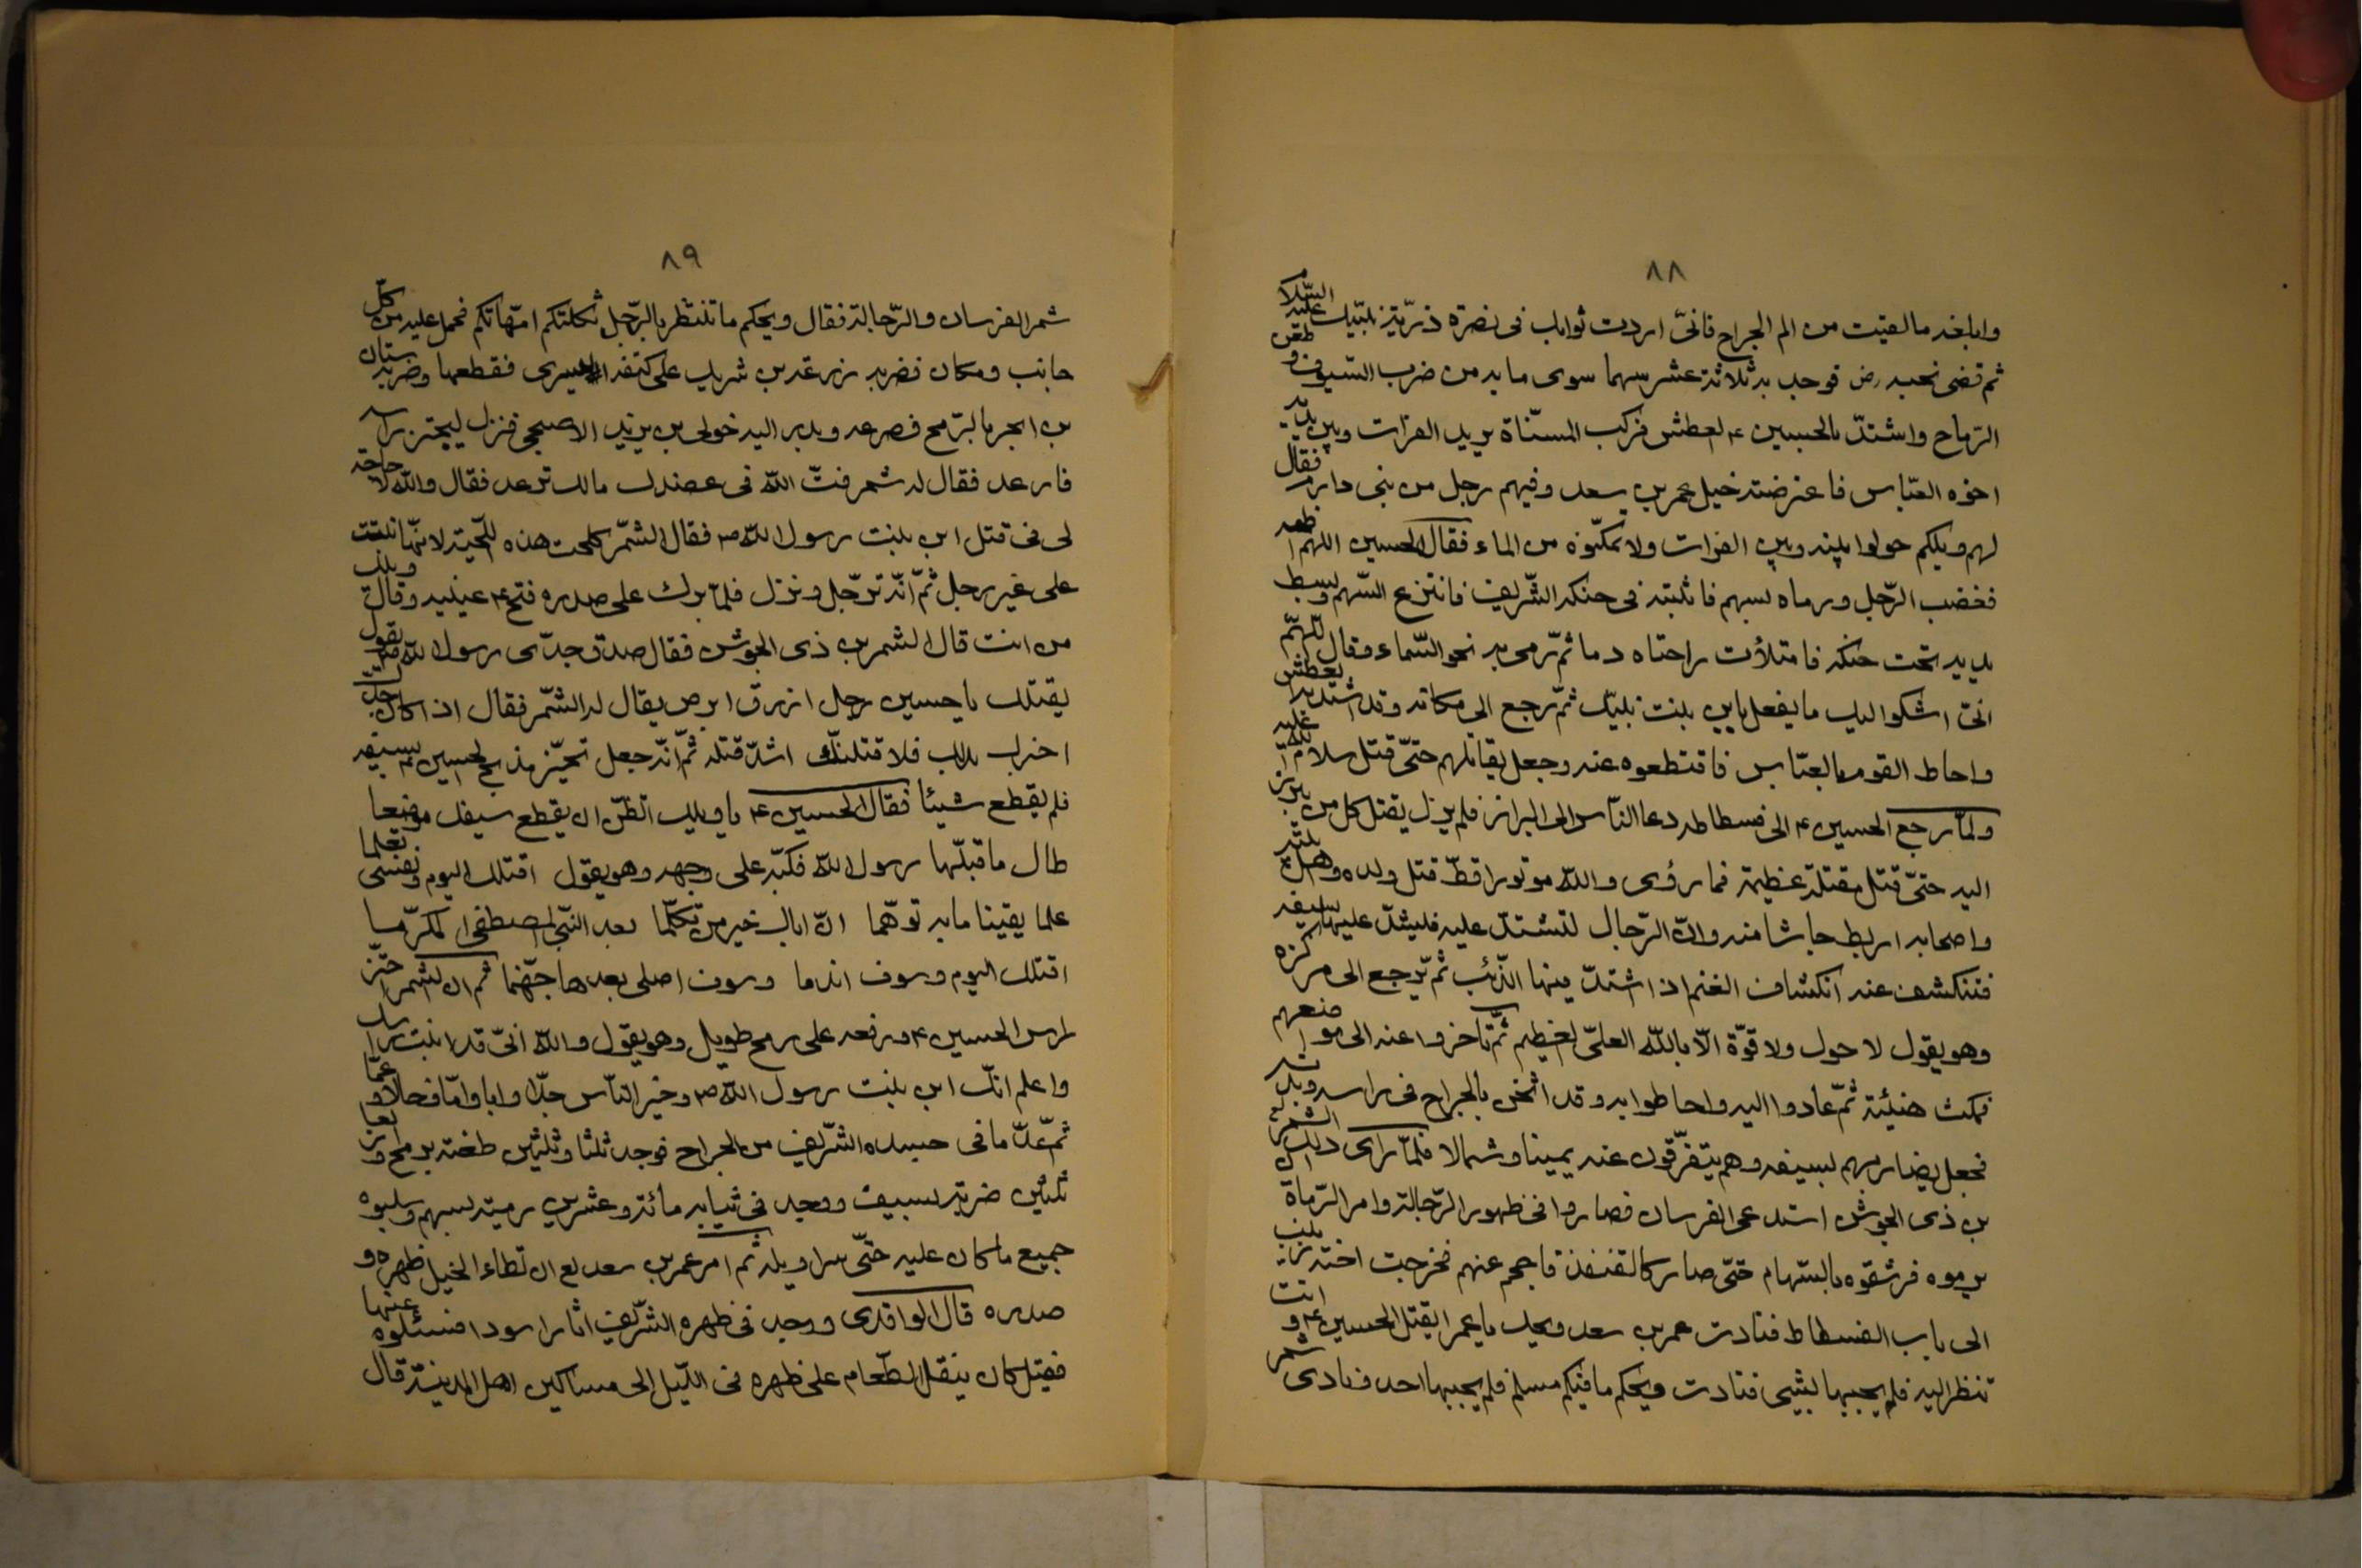 ٨٨
وابلغه ما لقيت من الم الجراح فانّى اردت ثوابك فى نصرة ذرّيّة نبيّك عليه السّلام
ثم قضى نحبه رض فوجد به ثلاثة عشر سهما سوى ما به من ضرب السّيوف و طعن
الرّماح واشتدّ بالحسين ع العطش فركب المسنّاة يريد الفرات وبين يديه
اخوه العبّاس فاعترضته خيل عمر بن سعد وفيهم رجل من بنى دارم فقال
لهم ويلكم حولوا بينه وبين الفرات ولا تمكّنوه من الماء فقال الحسين اللهمّ اظمه
فغضب الرّجل ورماه بسهم فاثبته فى حنكه الشّريف فانتزع السّهم وبسط
يديه تحت حنكه فامتلأت راحتاه دما ثمّ رمى به نحو السّماء وقال اللّهمّ
انّى اشكو اليك ما يفعل بابن بنت نبيّك ثمّ رجع الى مكانه وقد اشتدّ به العطش
واحاط القوم بالعبّاس فاقتطعوه عنه وجعل يقاتلهم حتّى قتل سلام الله عليه
ولمّا رجع الحسين ع الى فسطاطه دعا النّاس الى البراز فلم يزل يقتل كل من يبرز
اليه حتّى قتل مقتلة عظيمة فما رؤى والله موتورا قطّ قتل ولده واهل بيته
واصحابه اربط جاشا منه وانّ الرّجال لتشتدّ عليه فليشدّ عليها بسيفه
فتنكشف عنه انكشاف الغنم اذا اشتدّ فيها الذّئب ثمّ يرجع الى مركزه
وهو يقول لا حول ولا قوّة الّا باللّه العلىّ العظيم ثمّ تأخروا عنه الى مواضعهم
فمكث هنيئة ثمّ عادوا اليه واحاطوا به وقد اثخن بالجراح فى راسه وبدنه
فجعل يضاربهم بسيفه وهم يتفرّقون عنه يمينا وشمالا فلمّا راى ذلك الشمر
بن ذى الجوشن استدعى الفرسان فصاروا فى ظهور الرّجالة وامر الرّماة ان
يرموه فرشقوه بالسّهام حتّى صار كالقنفذ فاحجم عنهم فخرجت اخته زينب
الى باب الفسطاط فنادت عمر بن سعد ويحك يا عمر ايقتل الحسين ع و انت
تنظر اليه فلم يجبها بشيى فنادت ويحكم ما فيكم مسلم فلم يجبها احد فنادى شمر
٨٩
شمر الفرسان والرّجالة فقال ويحكم ما تنتظر بالرّجل ثكلتكم امّهاتكم فحمل عليه من كلّ
جانب ومكان فضربه زرعة بن شريك على كتفه اليسرى فقطعها وضربه سنان
بن انس بالرّمح فصرعه وبدر اليه خولى بن يزيد الاصبحى فنزل ليجتز راسه
فارعد فقال له شمر فتّ الله فى عضدك مالك ترعد فقال والله لا حاجة
لى فى قتل ابن بنت رسول الله ص فقال الشّمر كلحت هذه اللّحية لانّها نبتت
على غير رجل ثمّ انّه ترجّل ونزل فلمّا برك على صدره فتح ع عينيه وقال ويلك
من انت قال الشمر بن ذى الجوشن فقال صدق جدّى رسول الله ص يقول
يقتلك يا حسين رجل ازرق ابرص يقال له الشّمر فقال اذا كان جدّك
اخبرك بذلك فلاقتلنّك اشدّ قتلة ثمّ انّه جعل يحزّ مذبح الحسين ع بسيفه
فلم يقطع شيئا فقال الحسين ع يا ويلك اتظنّ ان يقطع سيفك موضعا
طال ما قبّلها رسول الله فكبّه على وجهه وهو يقول اقتلك اليوم ونفسى تعلما
علما يقينا ما به توهّما انّ اباك خير من تكلّما بعد النّبى المصطفى المكرّما
اقتلك اليوم وسوف اندما وسوف اصلى بعدها جهّنما ثم ان الشمر احتزّ
راس الحسين ع ورفعه على رمح طويل وهو يقول والله انّى قد ابنت راسك
واعلم انّك ابن بنت رسول الله ص وخير النّاس جدّا وابا وامّا وخالا و عمّا
ثمّ عدّ ما فى جسده الشّريف من الجراح فوجد ثلثا وثلثين طعنة برمح واربعا
ثلثين ضربة بسيف ووجد فى ثيابه مائة وعشرين رمية بسهم وسلبوه
جميع ما كان عليه حتّى سراويله ثم امر عمر بن سعد لع ان تطاء الخيل ظهره و
صدره قال الواقدى ووجد فى ظهره الشّريف اثارا سودا فسئلوه عنها
فقيل كان ينقل الطّعام على ظهره فى اللّيل الى مساكين اهل المدينة قال